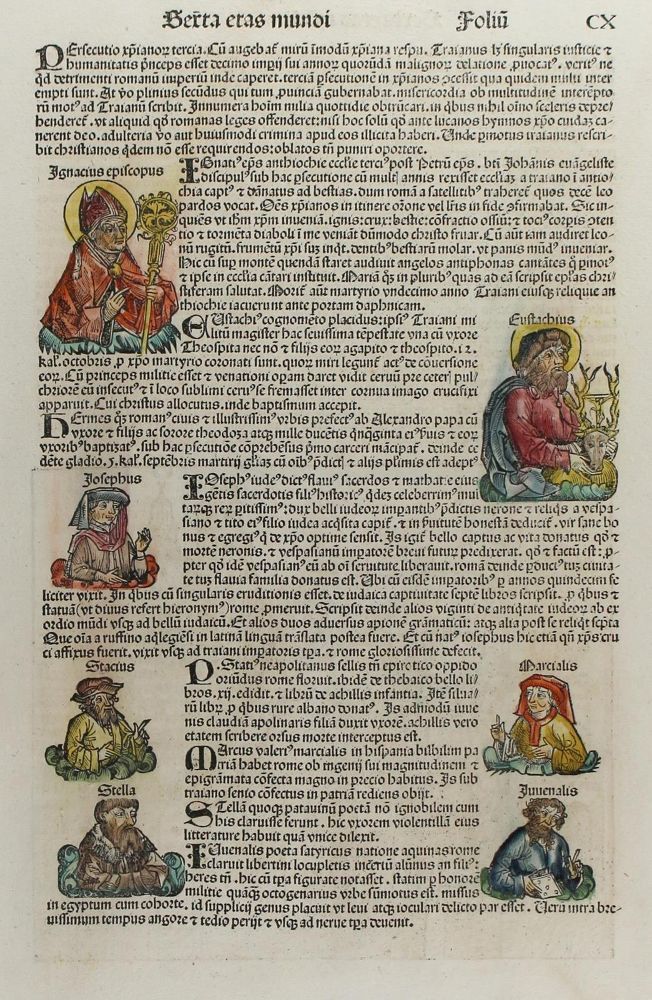 Sexta etas mundi Foliũ CX
PErsecutio xp̃ianoꝝ tercia. Cũ augebat̃ mirũ ĩmodũ xp̃iana respu. Traianus lꝫ singularis iusticie ⁊
humanitatis p̃nceps esset decimo imp̃ij sui annoꝝ quorũdã malignoꝝ delatione ꝓuocat᷒. verit᷒ ne
qd̃ detrimenti romanũ imperiũ inde caperet. terciã ꝑsecutionem in xp̃ianos ꝓcessit qua quidem multi inter
empti sunt. At ṽo plinius secũdus qui tum ꝓuinciã gubernabat. misericordia ob multitudinem interẽpto
rũ mot᷒ ad Traianũ scribit. Innumera hoĩm milia quottidie obtrũcari. in q̃bus nihil oĩno sceleris depre/
henderet̃. vt aliquid qd̃ romanas leges offenderet: nisi hoc solũ qd̃ ante lucanos hymnos xp̃o cuidã ca/
nerent deo. adulteria ṽo aut huiusmodi crimina apud eos illicita haberi. Unde ꝑmotus traianus rescri/
bit christianos q̃dem nõ esse requirendos: oblatos tñ puniri oportere.
Ignacius episcopus
IGnati᷒ ep̃s anthiochie eccl̃ie terci᷒ post Petrũ ep̃s. bt̃i Johãnis euãgeliste
discipul᷒ sub hac ꝑsecutione cũ mult annis rexisset eccl̃iaꝫ a traiano ĩ antio/
chia capt᷒ ⁊ dãnatus ad bestias. dum romã a satellitib᷒ traheret̃ quos decẽ leo
pardos vocat. Oẽs xp̃ianos in itinere or̃one vel l̃ris in fide ꝯfirmabat. Sic in/
quiẽs vt ih̃m xp̃m inueniã. ignis: crux: bestie: cõfractio ossiũ: ⁊ toci᷒ corꝑis ꝯten
tio ⁊ tormẽta diaboli ĩ me veniãt dũmodo christo fruar. Cũ aũt iam audiret leo/
nũ rugitũ. frumẽtũ xp̃i suꝫ inq̃t. dentib᷒ bestiarũ molar. vt panis mũd᷒ inueniar.
Hic cũ suꝑ montẽ quendã staret audiuit angelos antiphonas cantãtes q̃ ꝑmot᷒
⁊ ipse in eccl̃ia cãtari instituit. Mariã q̃s in plurib᷒ quas ad eã scripsit ep̃las chri/
stiferam salutat. Morit̃ aũt martyrio vndecimo anno Traiani eiusqꝫ reliquie an
thiochie iacuerunt ante portam daphnicam.
Eustachius
EUstachi᷒ cognomẽto placidus: ipsi᷒ Traiani mi
litũ magister hac seuissima tẽpestate vna cũ vxore
Theospita nec nõ ⁊ filijs eoꝝ agapito ⁊ theospito. 12.
kal̃. octobris ꝓ xp̃o martyrio coronati sunt. quoꝝ miri legunt̃ act᷒ de cõuersione
eoꝝ. Cũ princeps milicie esset ⁊ venationi oꝑam daret vidit ceruũ pre ceter pul/
chriorẽ eũ insecut᷒ ⁊ ĩ loco sublimi ceru᷒ se fremasset inter cornua imago crucifixi
apparuit. Cui christus allocutus. inde baptismum accepit.
HErmes q̃s roman᷒ ciuis ⁊ illustrissim᷒ vrbis prefect᷒ ab Alexandro papa cũ
vxore ⁊ filijs ac sorore theodoꝫa atqꝫ mille ducẽtis q̃nq̃ginta ei᷒ ẽuis ⁊ eoꝝ
vxorib᷒ baptizat᷒. sub hac ꝑsecutiõe cõprehẽsus p̃mo carceri mãcipat̃. deinde ce
dẽte gladio. 5. kal̃. septẽbris martirij gl̃iaꝫ cũ oĩb᷒ p̃dict ⁊ alijs pl̃imis est adept᷒
Josephus
IOseph᷒ iude᷒ dict᷒ flaui᷒ sacerdos ⁊ mathatie eius
gẽtis sacerdotis fili᷒ historic᷒ q̃deꝫ celeberrim᷒ mul
tarũqꝫ reꝝ ꝑitissim᷒: dux belli iudeoꝝ imꝑantib᷒ p̃dictis nerone ⁊ reliq̃s a vespa/
siano ⁊ tito ei᷒ filio iudea acq̃sita capit̃. ⁊ in ꝟitutẽ honestã deducit̃. vir sane bo
nus ⁊ egregi᷒ q̃ de xp̃o optime sensit. Js igit̃ bello captus ac vita donatus qd̃ ⁊
mortẽ neronis. ⁊ vespasianũ imꝑatorẽ breui futuꝝ predixerat. qd̃ ⁊ factũ est: ꝓ/
pter qd̃ idẽ vespasian᷒ eũ ab oĩ seruitute liberauit. romã deinde ꝑduci᷒ tuꝫ ciuita/
te tuꝫ flauia familia donatus est. Ubi cũ eisdẽ imꝑatorib᷒ ꝑ annos quindecim fe
liciter vixit. In q̃bus cũ singularis eruditionis esset. de iudaica captiuitate septẽ libros scripsit. ꝓ q̃bus ⁊
statuã (vt diuus refert hieronym᷒) rome ꝓmeruit. Scripsit deinde alios viginti de antiq̃tate iudeoꝝ ab ex
ordio mũdi vsqꝫ ad bellũ iudaicũ. Et alios duos aduersus apionẽ gramaticũ: atqꝫ alia post se reliq̃t septa
Que oĩa a ruffino aq̃legiẽsi in latinã linguã trãslata postea fuere. Et cũ nat᷒ iosephus hic etiã qñ xp̃s cru
ci affixus fuerit. vixit vsqꝫ ad traiani imꝑatoris tꝑa. ⁊ rome gloriosissime defecit.
Stacius
P. Stati᷒ neapolitanus sellis tñ epirotico oppido
oriũdus rome floruit. ibidẽ de thebaico bello li/
bros. xij. edidit. ⁊ librũ de achillis infantia. Jtẽ silua/
rũ libꝝ ꝓ q̃bus rure albano donat᷒. Js admõdũ iuue
nis claudiã apolinaris filiã duxit vxorẽ. achillis vero
etatem scribere orsus morte interceptus est.
Marcialis
MArcus valeri᷒ marcialis in hispania bilbilim pa
triã habet rome ob ingenij sui magnitudinem ⁊
epigrãmata cõfecta magno in precio habitus. Js sub
traiano senio cõfectus in patriã rediens obijt.
Stella
STellã quoqꝫ patauinũ poetã nõ ignobilem cum
his claruisse ferunt. hic vxorem violentillã eius
litterature habuit quã vnice dilexit.
Juuenalis
IUuenalis poeta satyricus natione aquinas rome
claruit libertini locupletis incertũ alũnus an fili᷒:
heres tñ. hic cũ tꝑa figurate notasset. statim ꝑ honorẽ
militie quãqꝫ octogenarius vrbe sũmotus est. missus
in egyptum cum cohorte. id supplicij genus placuit vt leui atqꝫ ioculari delicto par esset. Uerũ intra bre/
uissimum tempus angore ⁊ tedio perijt ⁊ vsqꝫ ad nerue tꝑa deuenit.